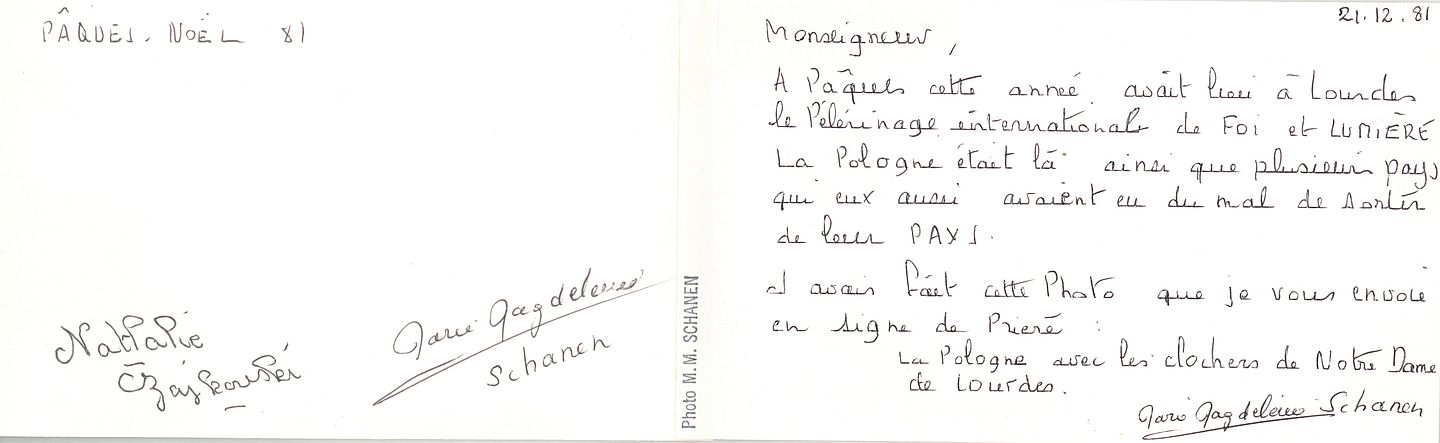 PÂQUES. NOËL 81
Nathalie
Czajkowski
Marie Magdeleine
Schanen
Photo M. M. SCHANEN
21.12.81
Monseigneur,
A Pâques cette année avait lieu à Lourdes
le Pélérinage international de FOI et LUMIÈRE
La Pologne était là ainsi que plusieurs pays
qui eux aussi avaient eu du mal de sortir
de leur PAYS.
J avais fait cette Photo que je vous envoie
en signe de Prieré :
La Pologne avec les clochers de Notre Dame
de Lourdes.
Marie Magdeleine Schanen